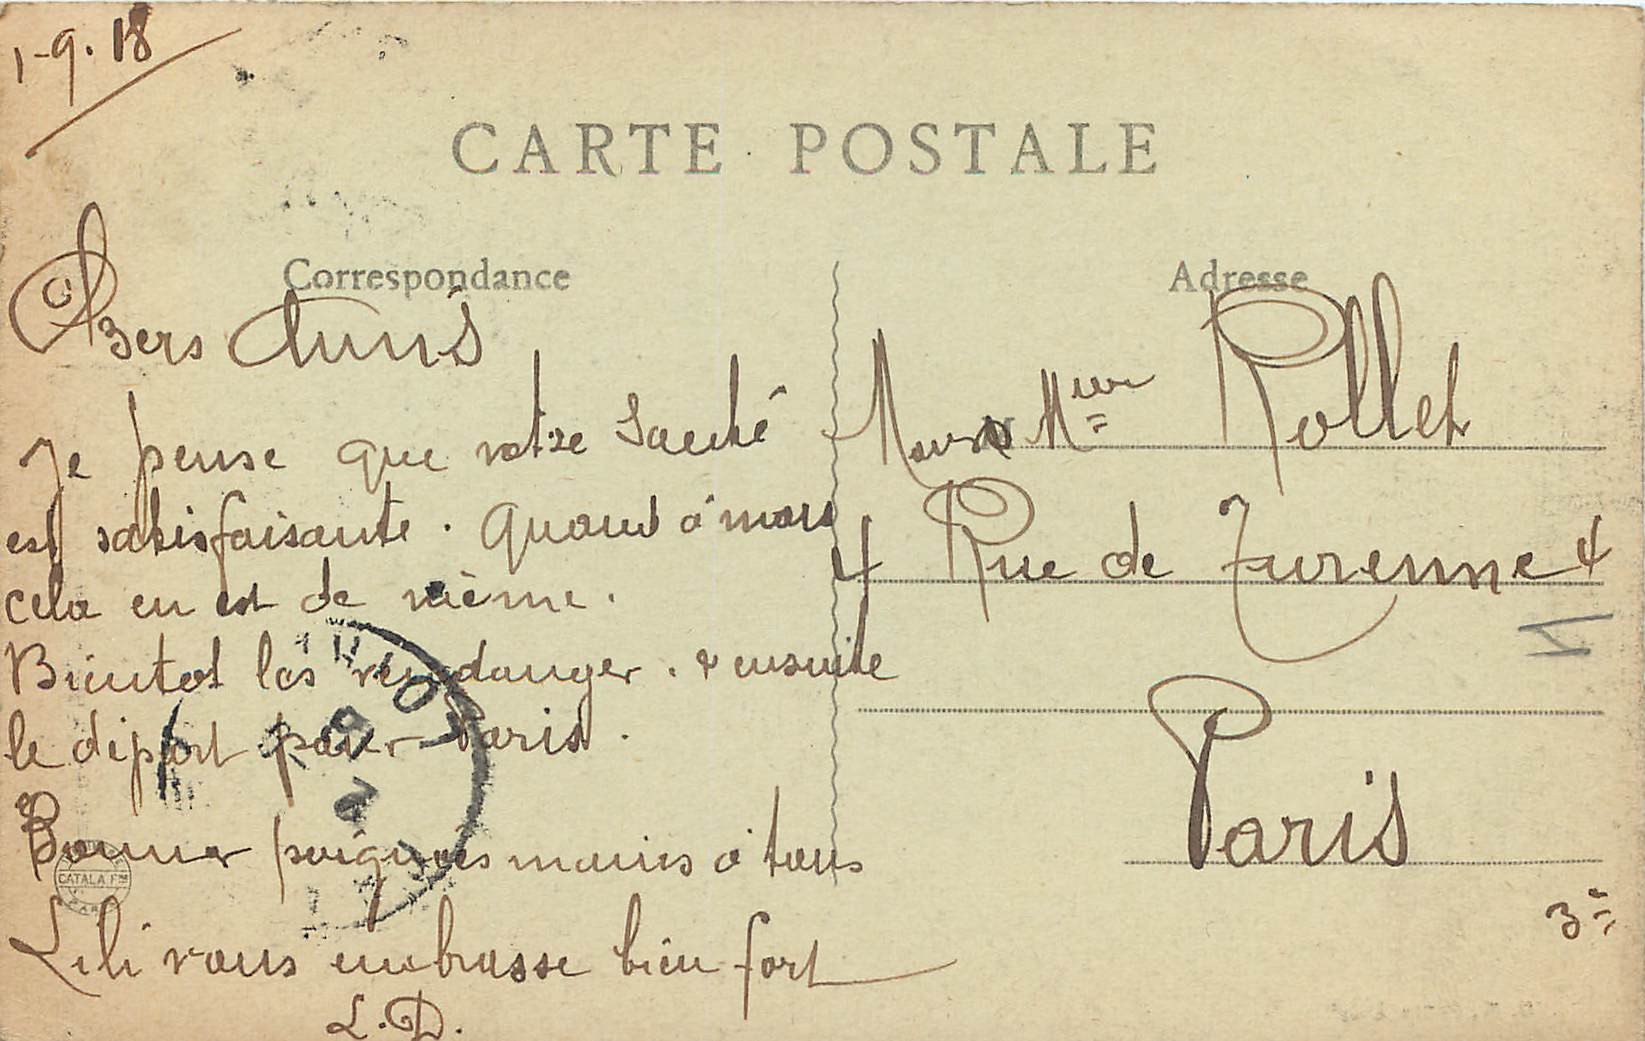 1-9.18
CARTE POSTALE
Correspondance
Adresse
Chers Amis
Je pense que votre santé
est satisfaisante. Quand à nous
cela en est de même.
Bientot les vendanger. & ensuite
le départ pour Paris.
Bonnes poignées mains à tous
Lili vous embrasse bien fort
L.D.
Mme Rollet
4 Rue de Turenne 4
Paris
3e
CATALA Fres
PARIS